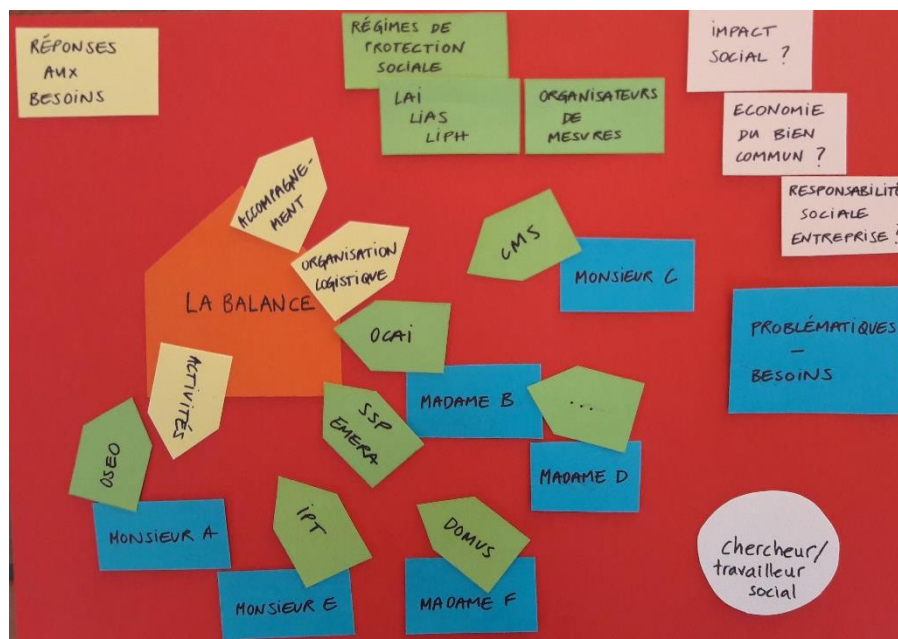 RÉPONSES
AUX
BESOINS
RÉGIMES DE
PROTECTION
SOCIALE
LAI
LIAS
LIPH
ORGANISATEURS
DE
MESURES
IMPACT
SOCIAL ?
ECONOMIE
DU BIEN
COMMUN ?
RESPONSABILITÉ
SOCIALE
ENTREPRISE ?
ACCOMPAGNE-
MENT
ORGANISATION
LOGISTIQUE
LA BALANCE
ACTIVITÉS
CMS
MONSIEUR C
OCAI
MADAME B
PROBLÉMATIQUES
–
BESOINS
SSP
EMERA
...
MADAME D
OSEO
MONSIEUR A
IPT
MONSIEUR E
DOMUS
MADAME F
chercheur/
travailleur
social